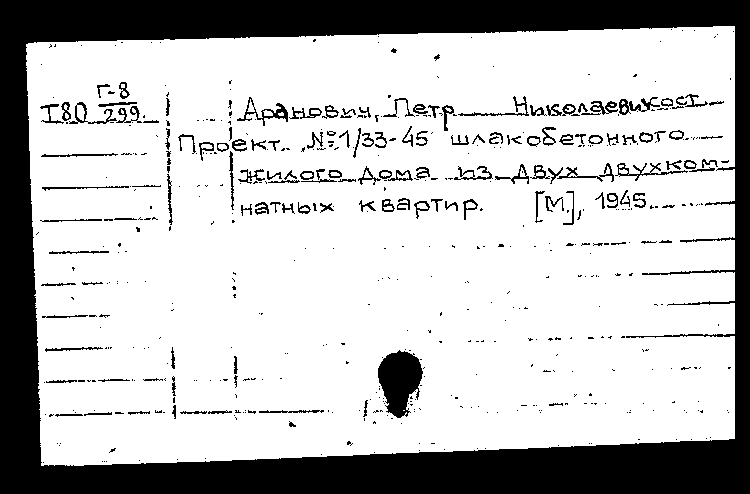 Г-8
I80 299.
Аранович, Петр Николаевич сост
Проект №1/33-45 шлакобетонного
жилого дома из двух двухком-
натных квартир. [М.], 1945.